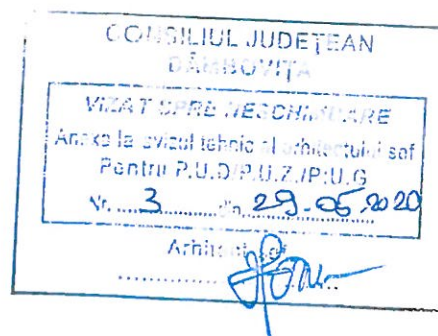 CONSILIUL JUDEȚEAN
DÂMBOVIȚA
VIZAT SPRE NESCHIMBARE
Anexa la avizul tehnic al arhitectului șef
Pentru P.U.D/P.U.Z./P.U.G
Nr. ....3.........din..29.-05.2020
Arhitect șef